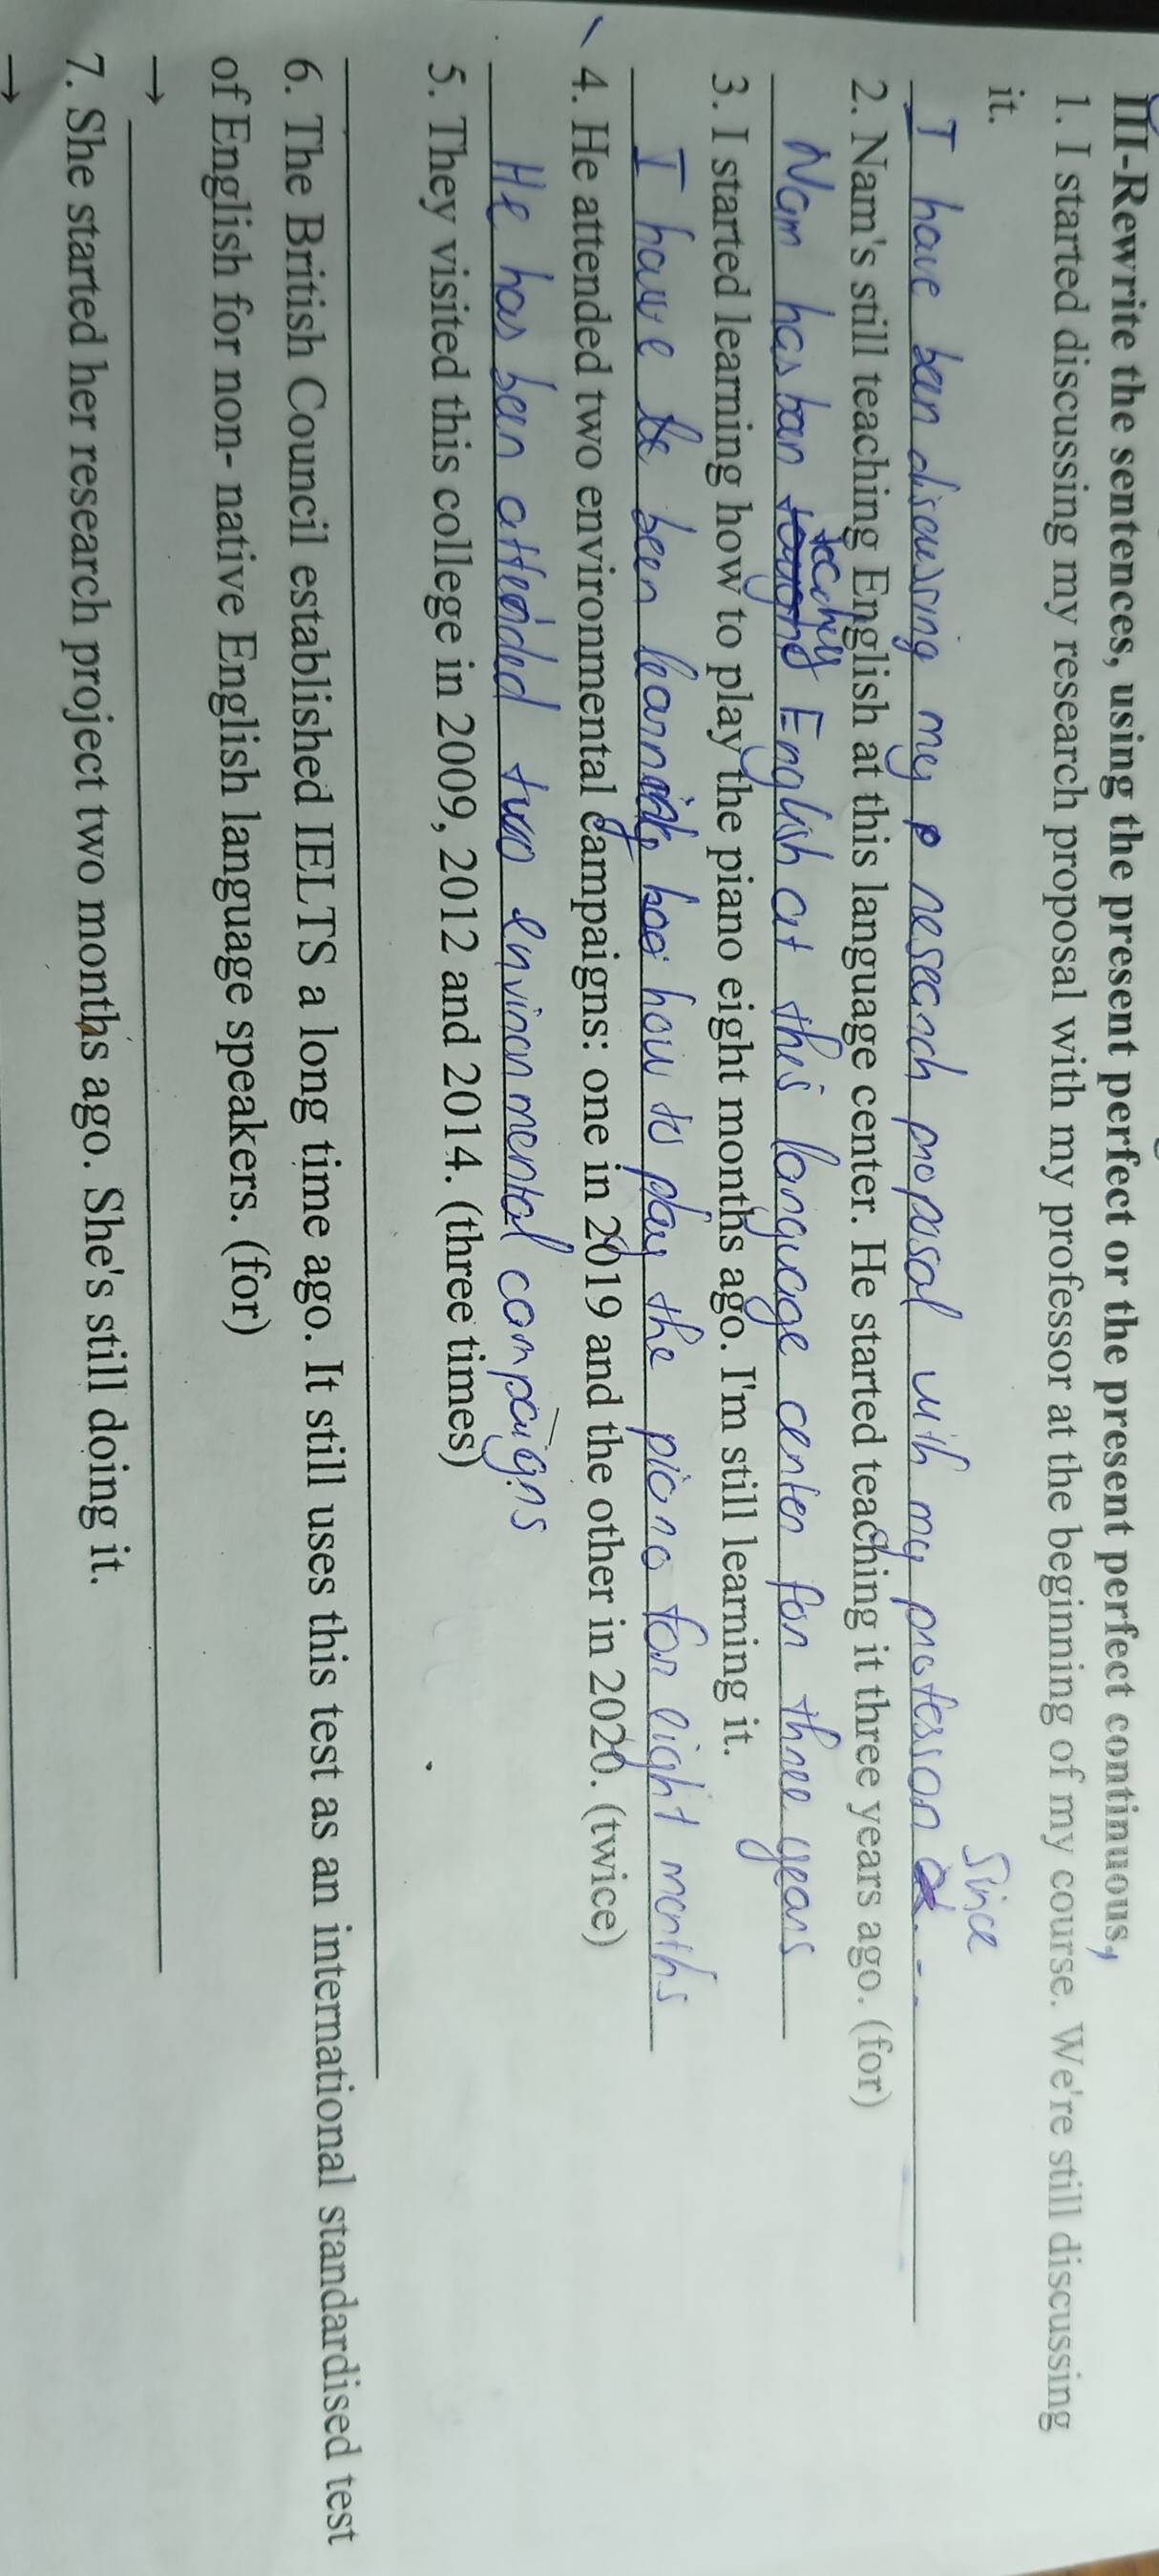 III-Rewrite the sentences, using the present perfect or the present perfect continuous,
1. I started discussing my research proposal with my professor at the beginning of my course. We're still discussing
it.
since
I have been discussing my research proposal with my professor
2. Nam's still teaching English at this language center. He started teaching it three years ago. (for)
Nam has ban teaching English at this language center for three years
3. I started learning how to play the piano eight months ago. I'm still learning it.
I have been learning how to play the piano for eight months
4. He attended two environmental campaigns: one in 2019 and the other in 2020. (twice)
He has been attended two environmental campaigns
5. They visited this college in 2009, 2012 and 2014. (three times)
6. The British Council established IELTS a long time ago. It still uses this test as an international standardised test
of English for non- native English language speakers. (for)
→
7. She started her research project two months ago. She's still doing it.
→